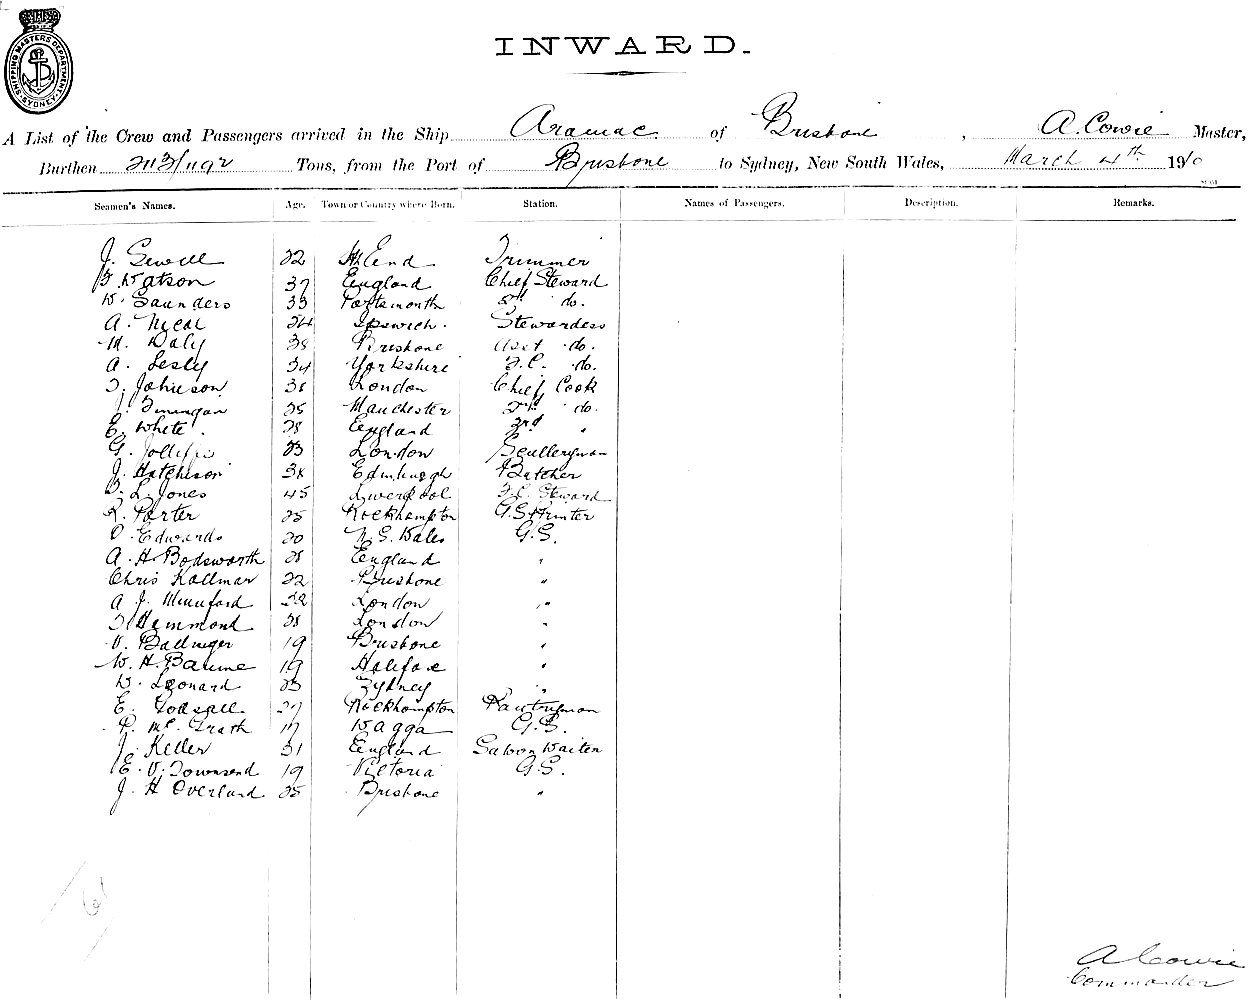 SHIPPING MASTERS DEPARTMENT SYDNEY
INWARD.
A List of the Crew and Passengers arrived in the Ship Aramac of Brisbane, A. Cowie Master,
Burthen Tons, from the Port of Brisbane to Sydney, New South Wales, March 4th 1910
Seamen's Names. Age. Town or Country where Born. Station. Names of Passengers. Description. Remarks.
J. Sewell 22 Trimmer
Watson 37 England Chief Steward
W. Saunders 33 Portsmouth 2nd do.
A. Neal 34 Ipswich. Stewardess
M. Daly 38 Brisbane Asst do.
A. Lesly 34 Yorkshire F.C. do.
Johnson London Chief Cook
J. Finnigan 25 Manchester 2nd do.
E. White. 28 England 3rd "
G. Jolliffe 23 London Sculleryman
J. Hutchison 38 Edinburgh Butcher
L. Jones 45 Liverpool F.C. Steward
R. Porter 25 Rockhampton G.S. Printer
Edwards 20 N.S. Wales G.S.
A. H. Bodsworth 28 England "
Chris Kallmar 22 Brisbane "
A J. Munford 22 London "
Hammond 28 London "
V. Ballinger 19 Brisbane "
W. H. Baume 19 Halifax "
W. Leonard 23 Sydney "
E. Godsall 27 Rockhampton Pantryman
P. McGrath 17 Wagga G.S.
J. Keller 31 England Saloon Waiter
E. V. Townsend 19 Victoria G.S.
J. H Overlund 25 Brisbane "
A Cowie
Commander